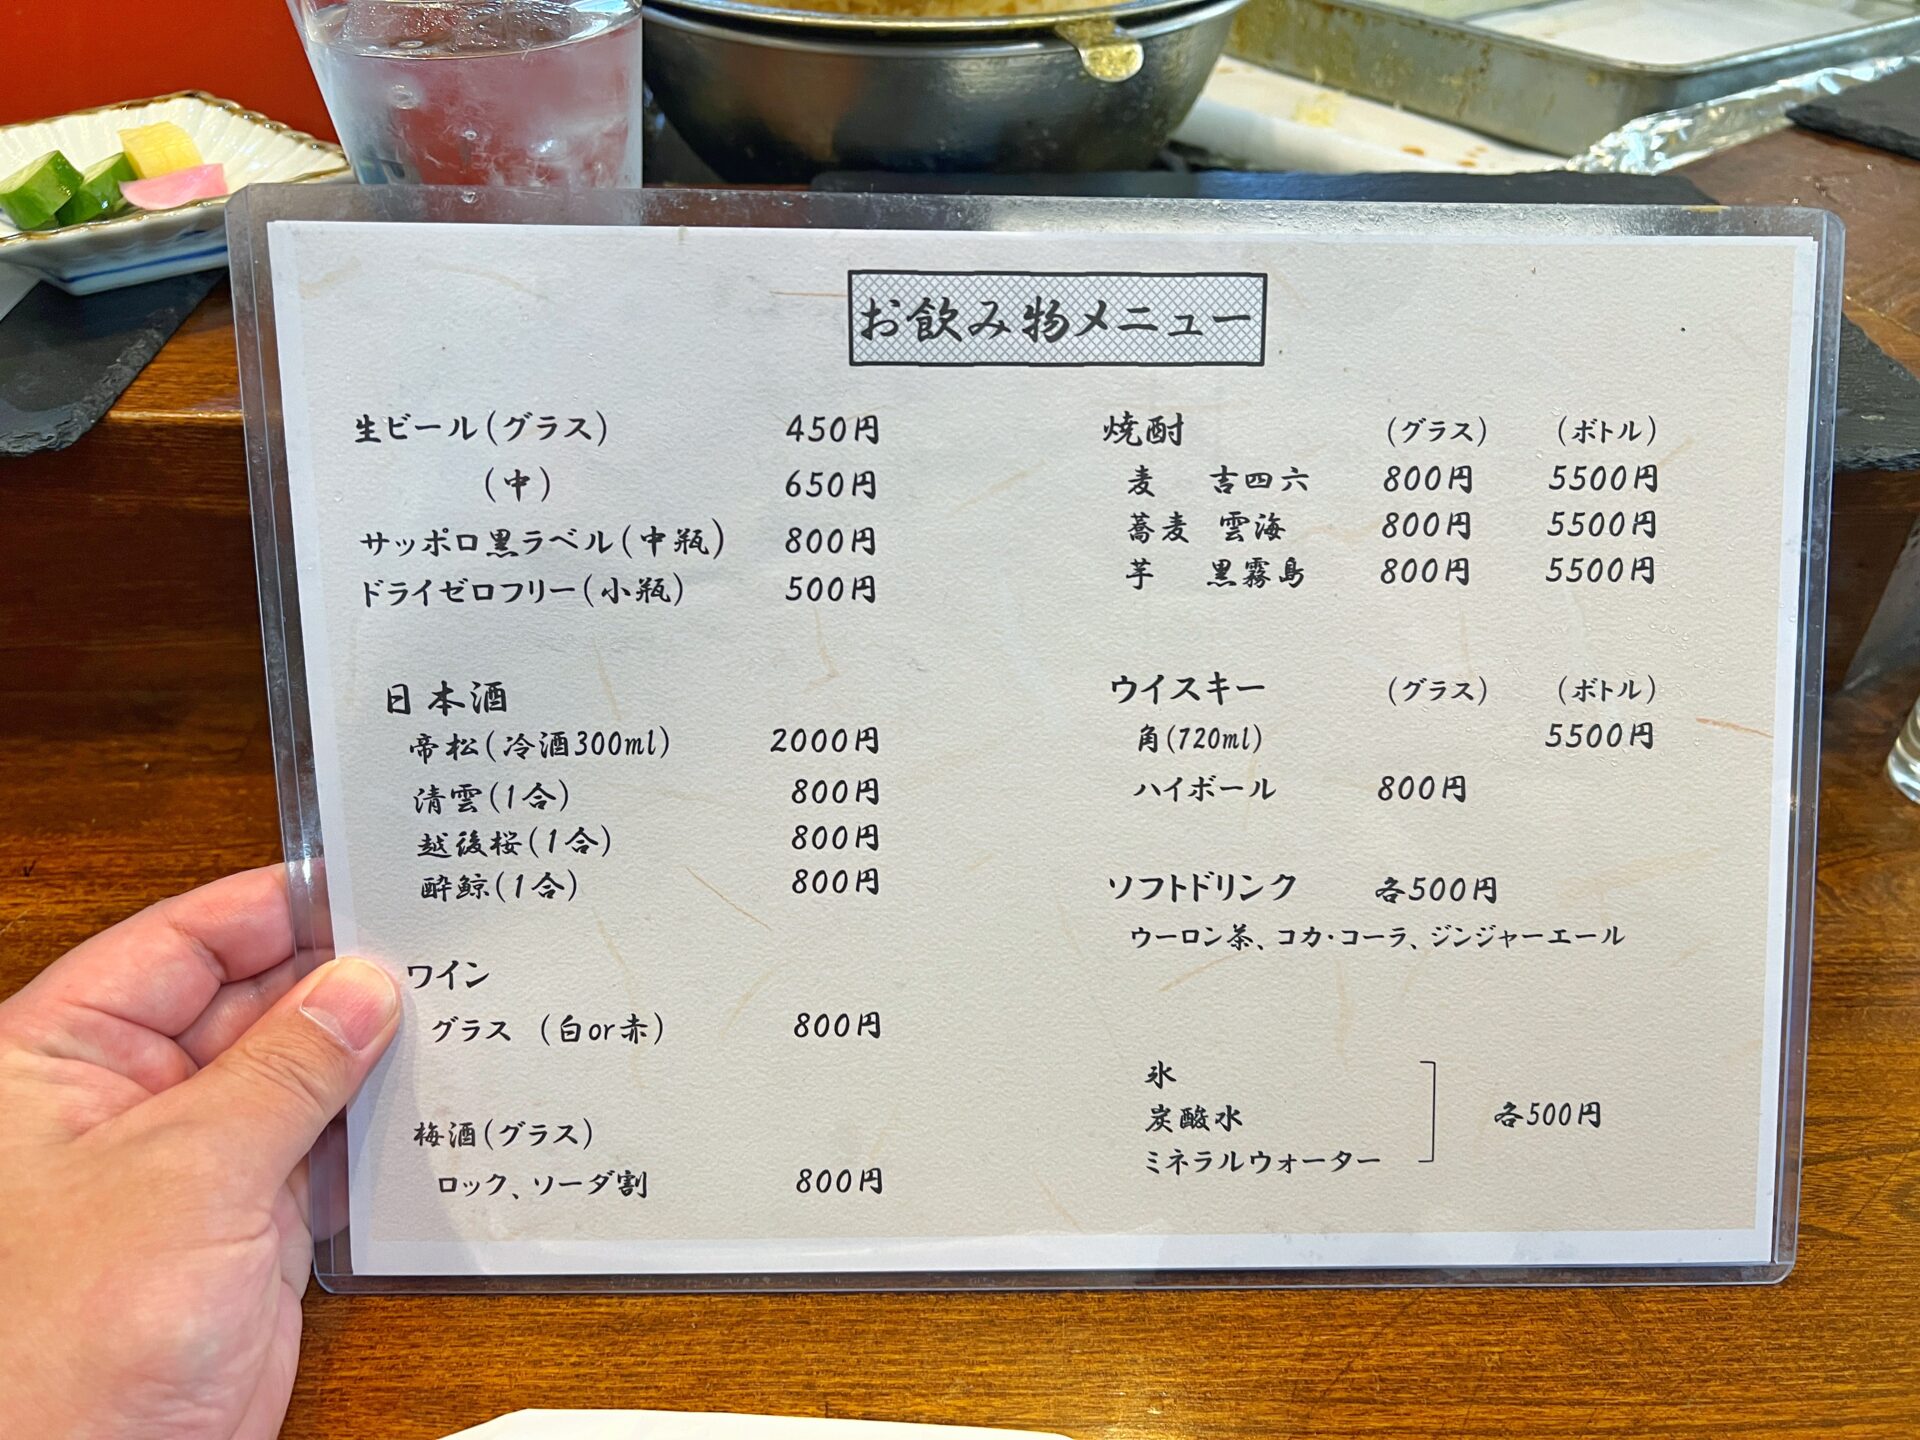 お飲み物メニュー
生ビール(グラス) 450円
(中) 650円
サッポロ黒ラベル(中瓶) 800円
ドライゼロフリー(小瓶) 500円
日本酒
帝松(冷酒300ml) 2000円
清雲(1合) 800円
越後桜(1合) 800円
酔鯨(1合) 800円
ワイン
グラス (白or赤) 800円
梅酒(グラス)
ロック、ソーダ割 800円
焼酎 (グラス) (ボトル)
麦 吉四六 800円 5500円
蕎麦 雲海 800円 5500円
芋 黒霧島 800円 5500円
ウイスキー (グラス) (ボトル)
角(720ml) 5500円
ハイボール 800円
ソフトドリンク 各500円
ウーロン茶、コカ・コーラ、ジンジャーエール
氷
炭酸水 各500円
ミネラルウォーター